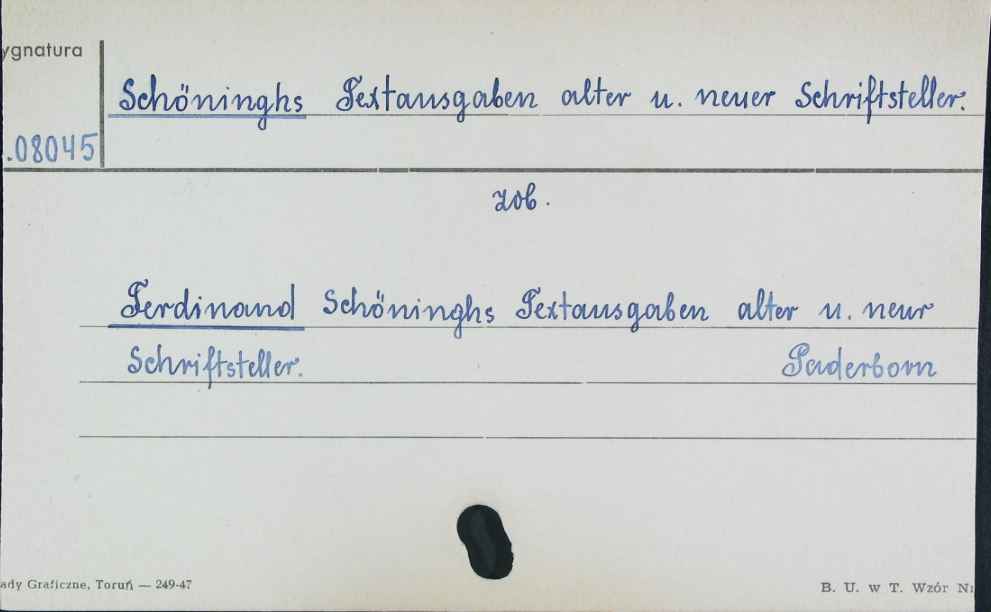 ygnatura
Schöninghs Textausgaben alter u. neuer Schriftsteller.
.08045
zob.
Ferdinand Schöninghs Textausgaben alter u. neur
Schriftsteller. Paderborn
ady Graficzne, Toruń — 249-47
B. U. w T. Wzór Nr